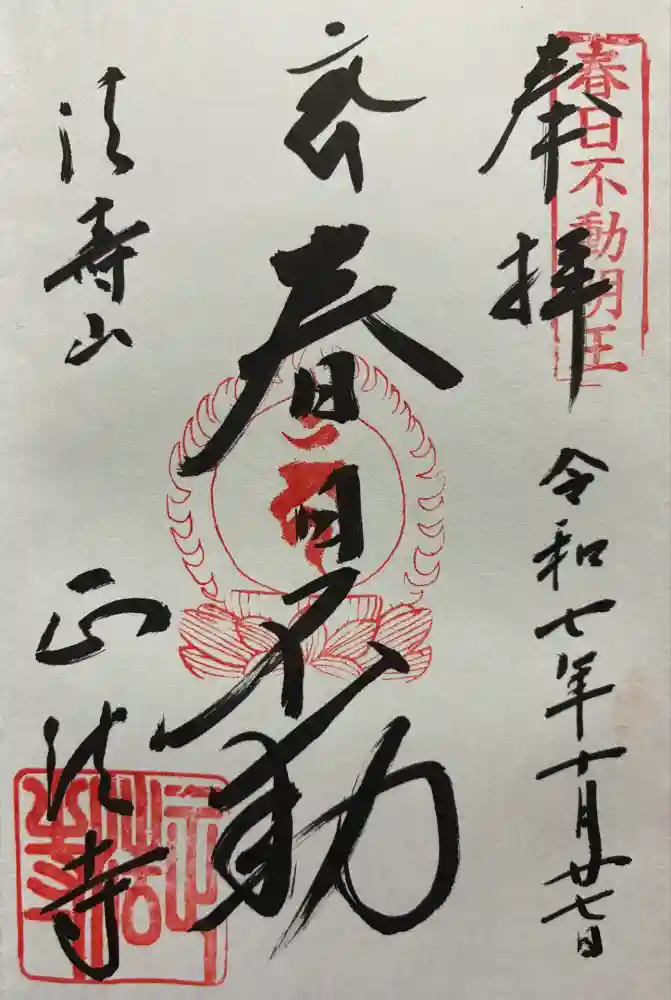 春日不動明王
奉拝
令和七年十月廿七日
春日不動
法寿山
正法寺